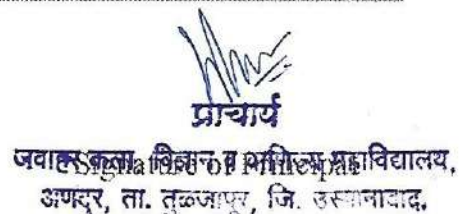 प्राचार्य
जवाहर कला, विज्ञान व वाणिज्य महाविद्यालय,
Signature of Principal
अणदूर, ता. तुळजापूर, जि. उस्मानाबाद.